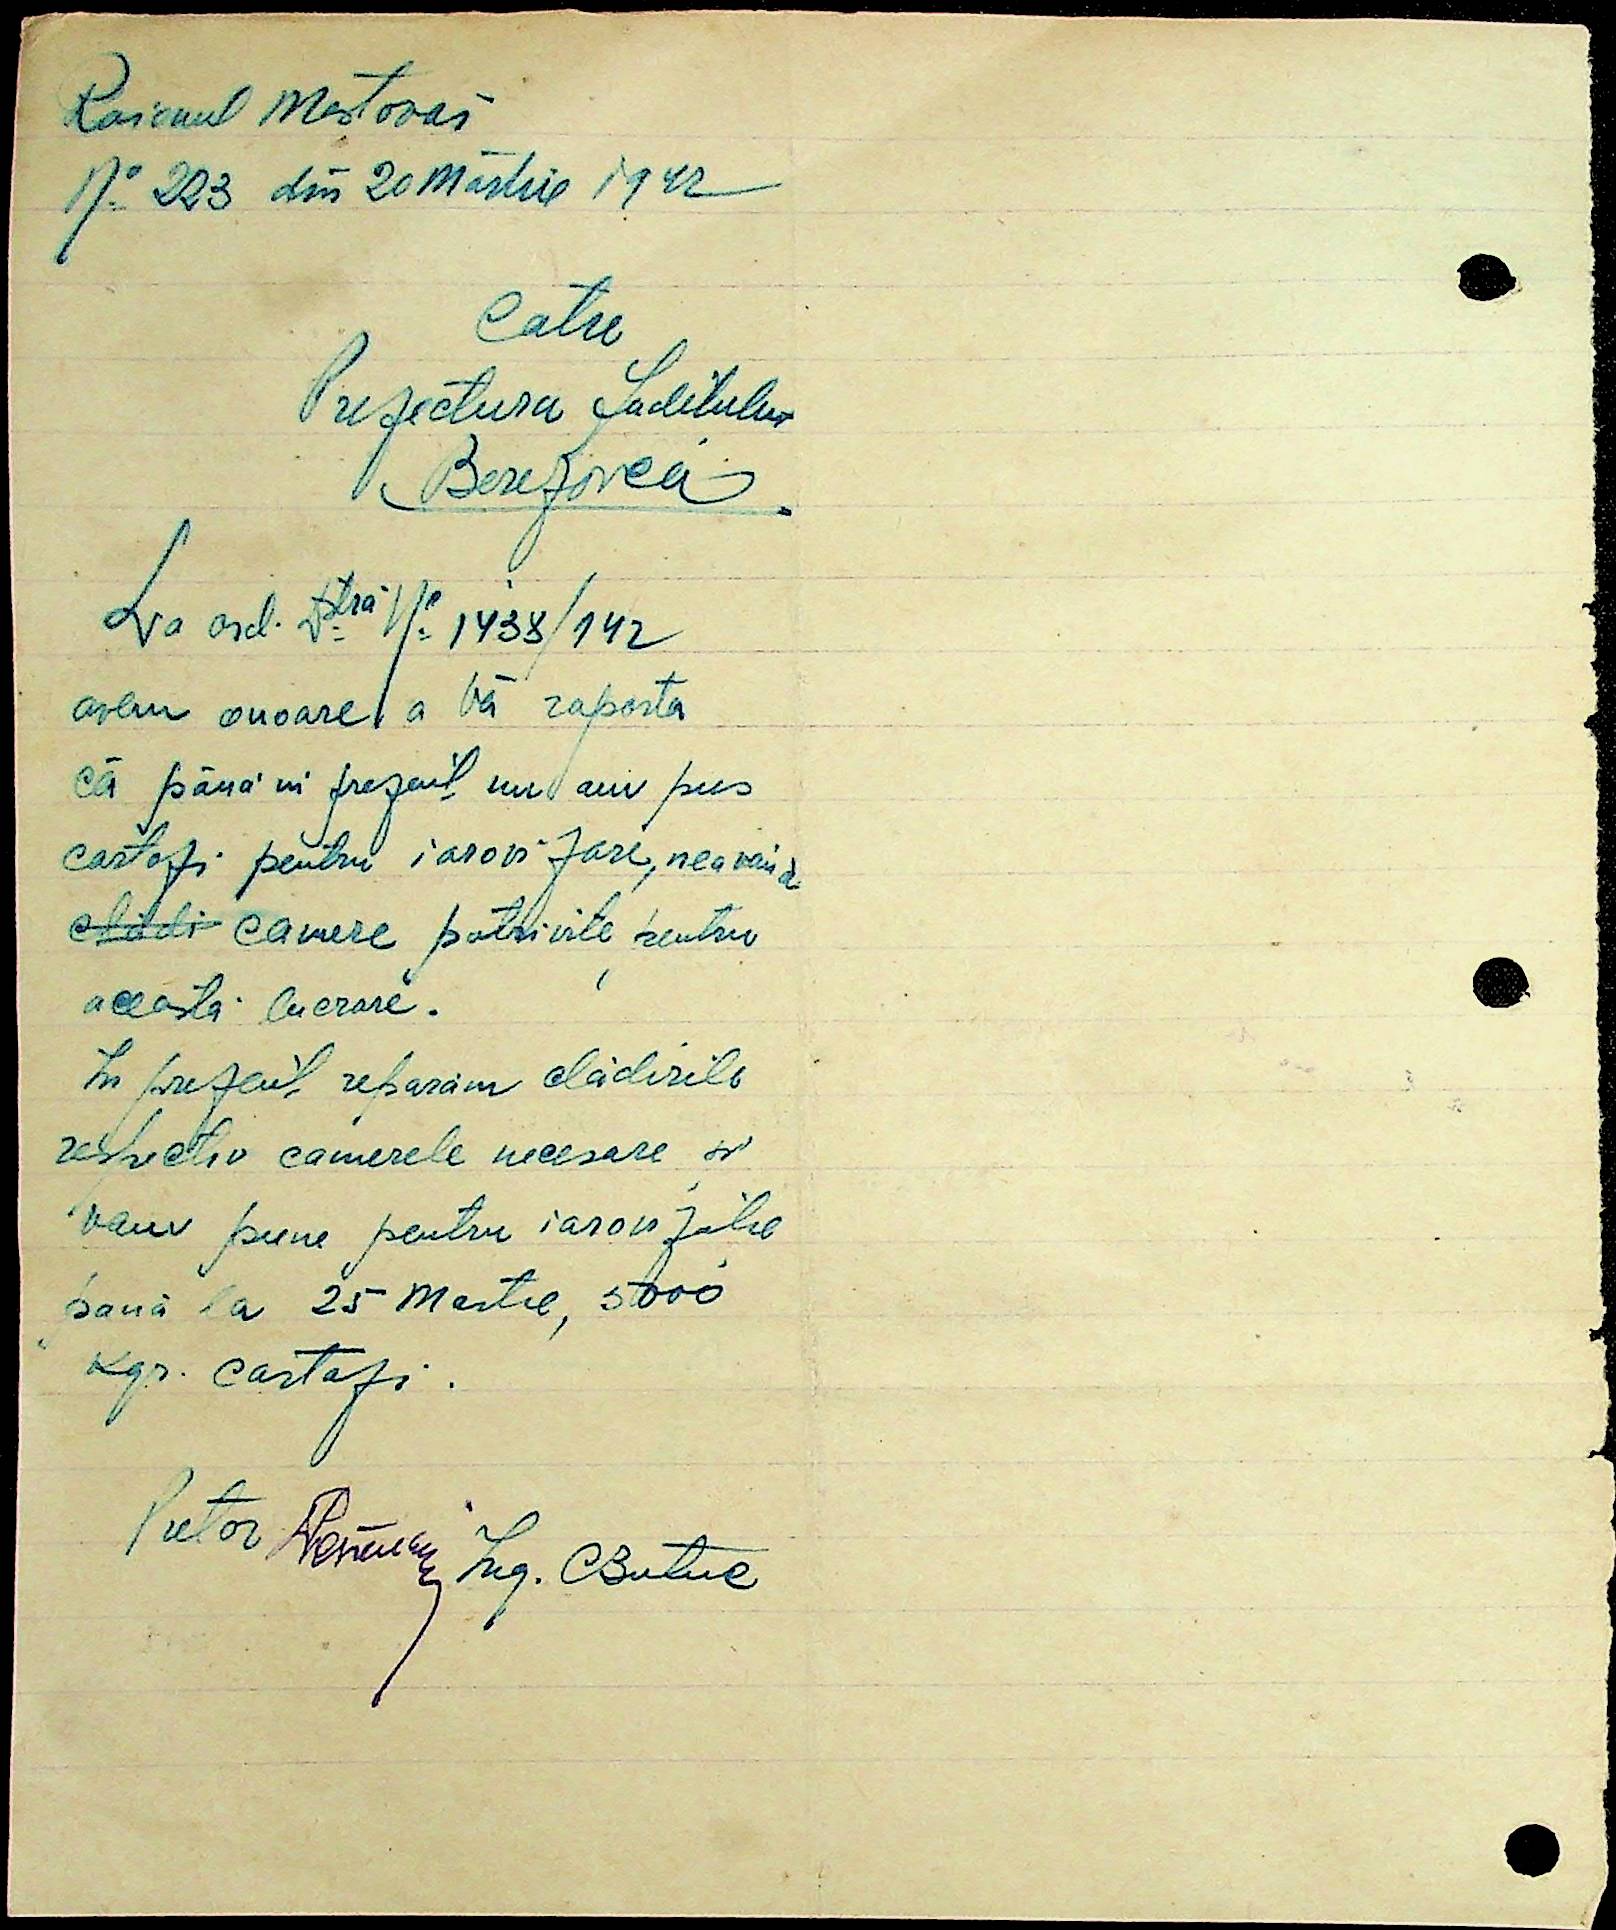 Raionul Mostovoi
No 223 din 20 Martie 1942
Catre
Prefectura Judetului
Berezovca
La ord. Dstră No 1438/142
avem onoare a Vă raporta
că până in prezent nu am pus
cartofi pentru iarovizare, neavand
cladi camere potrivite pentru
aceasta lucrare.
In prezent reparăm clădirile
respectiv camerele necesare si
vom pune pentru iarovizatie
pană la 25 Martie, 5000
Kgr. cartofi.
Pretor Ing. CButuc